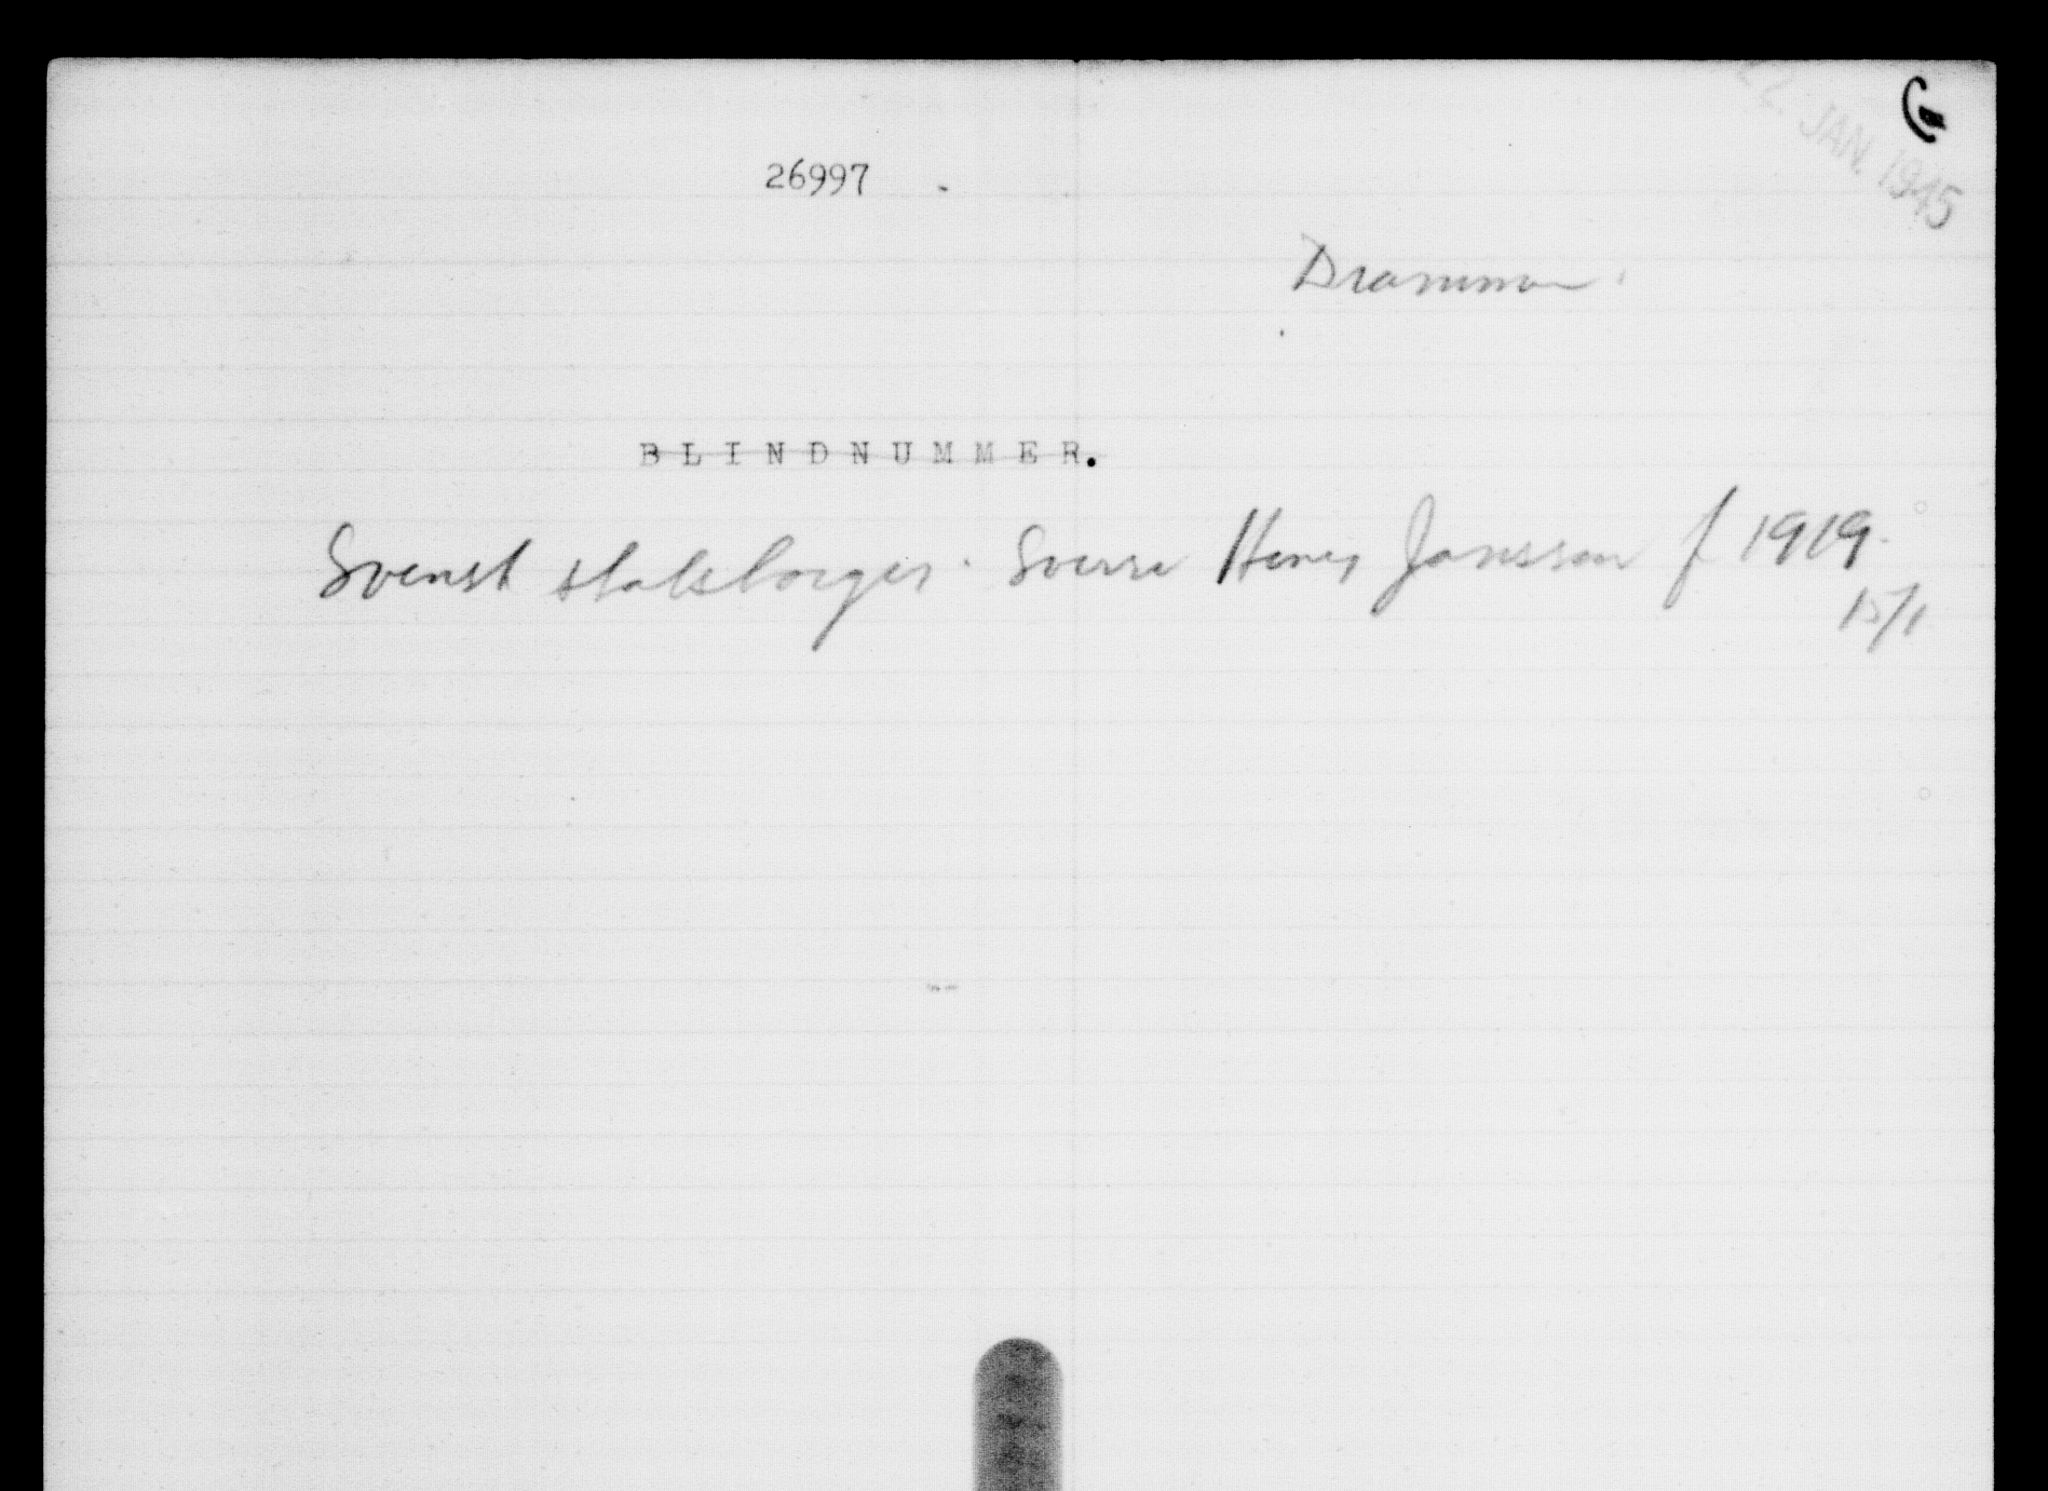 JAN. 1945
26997 .
Drammen.
BLINDNUMMER.
Svensk statsborger. Sverre Henry Jansson f 1919.
15/1